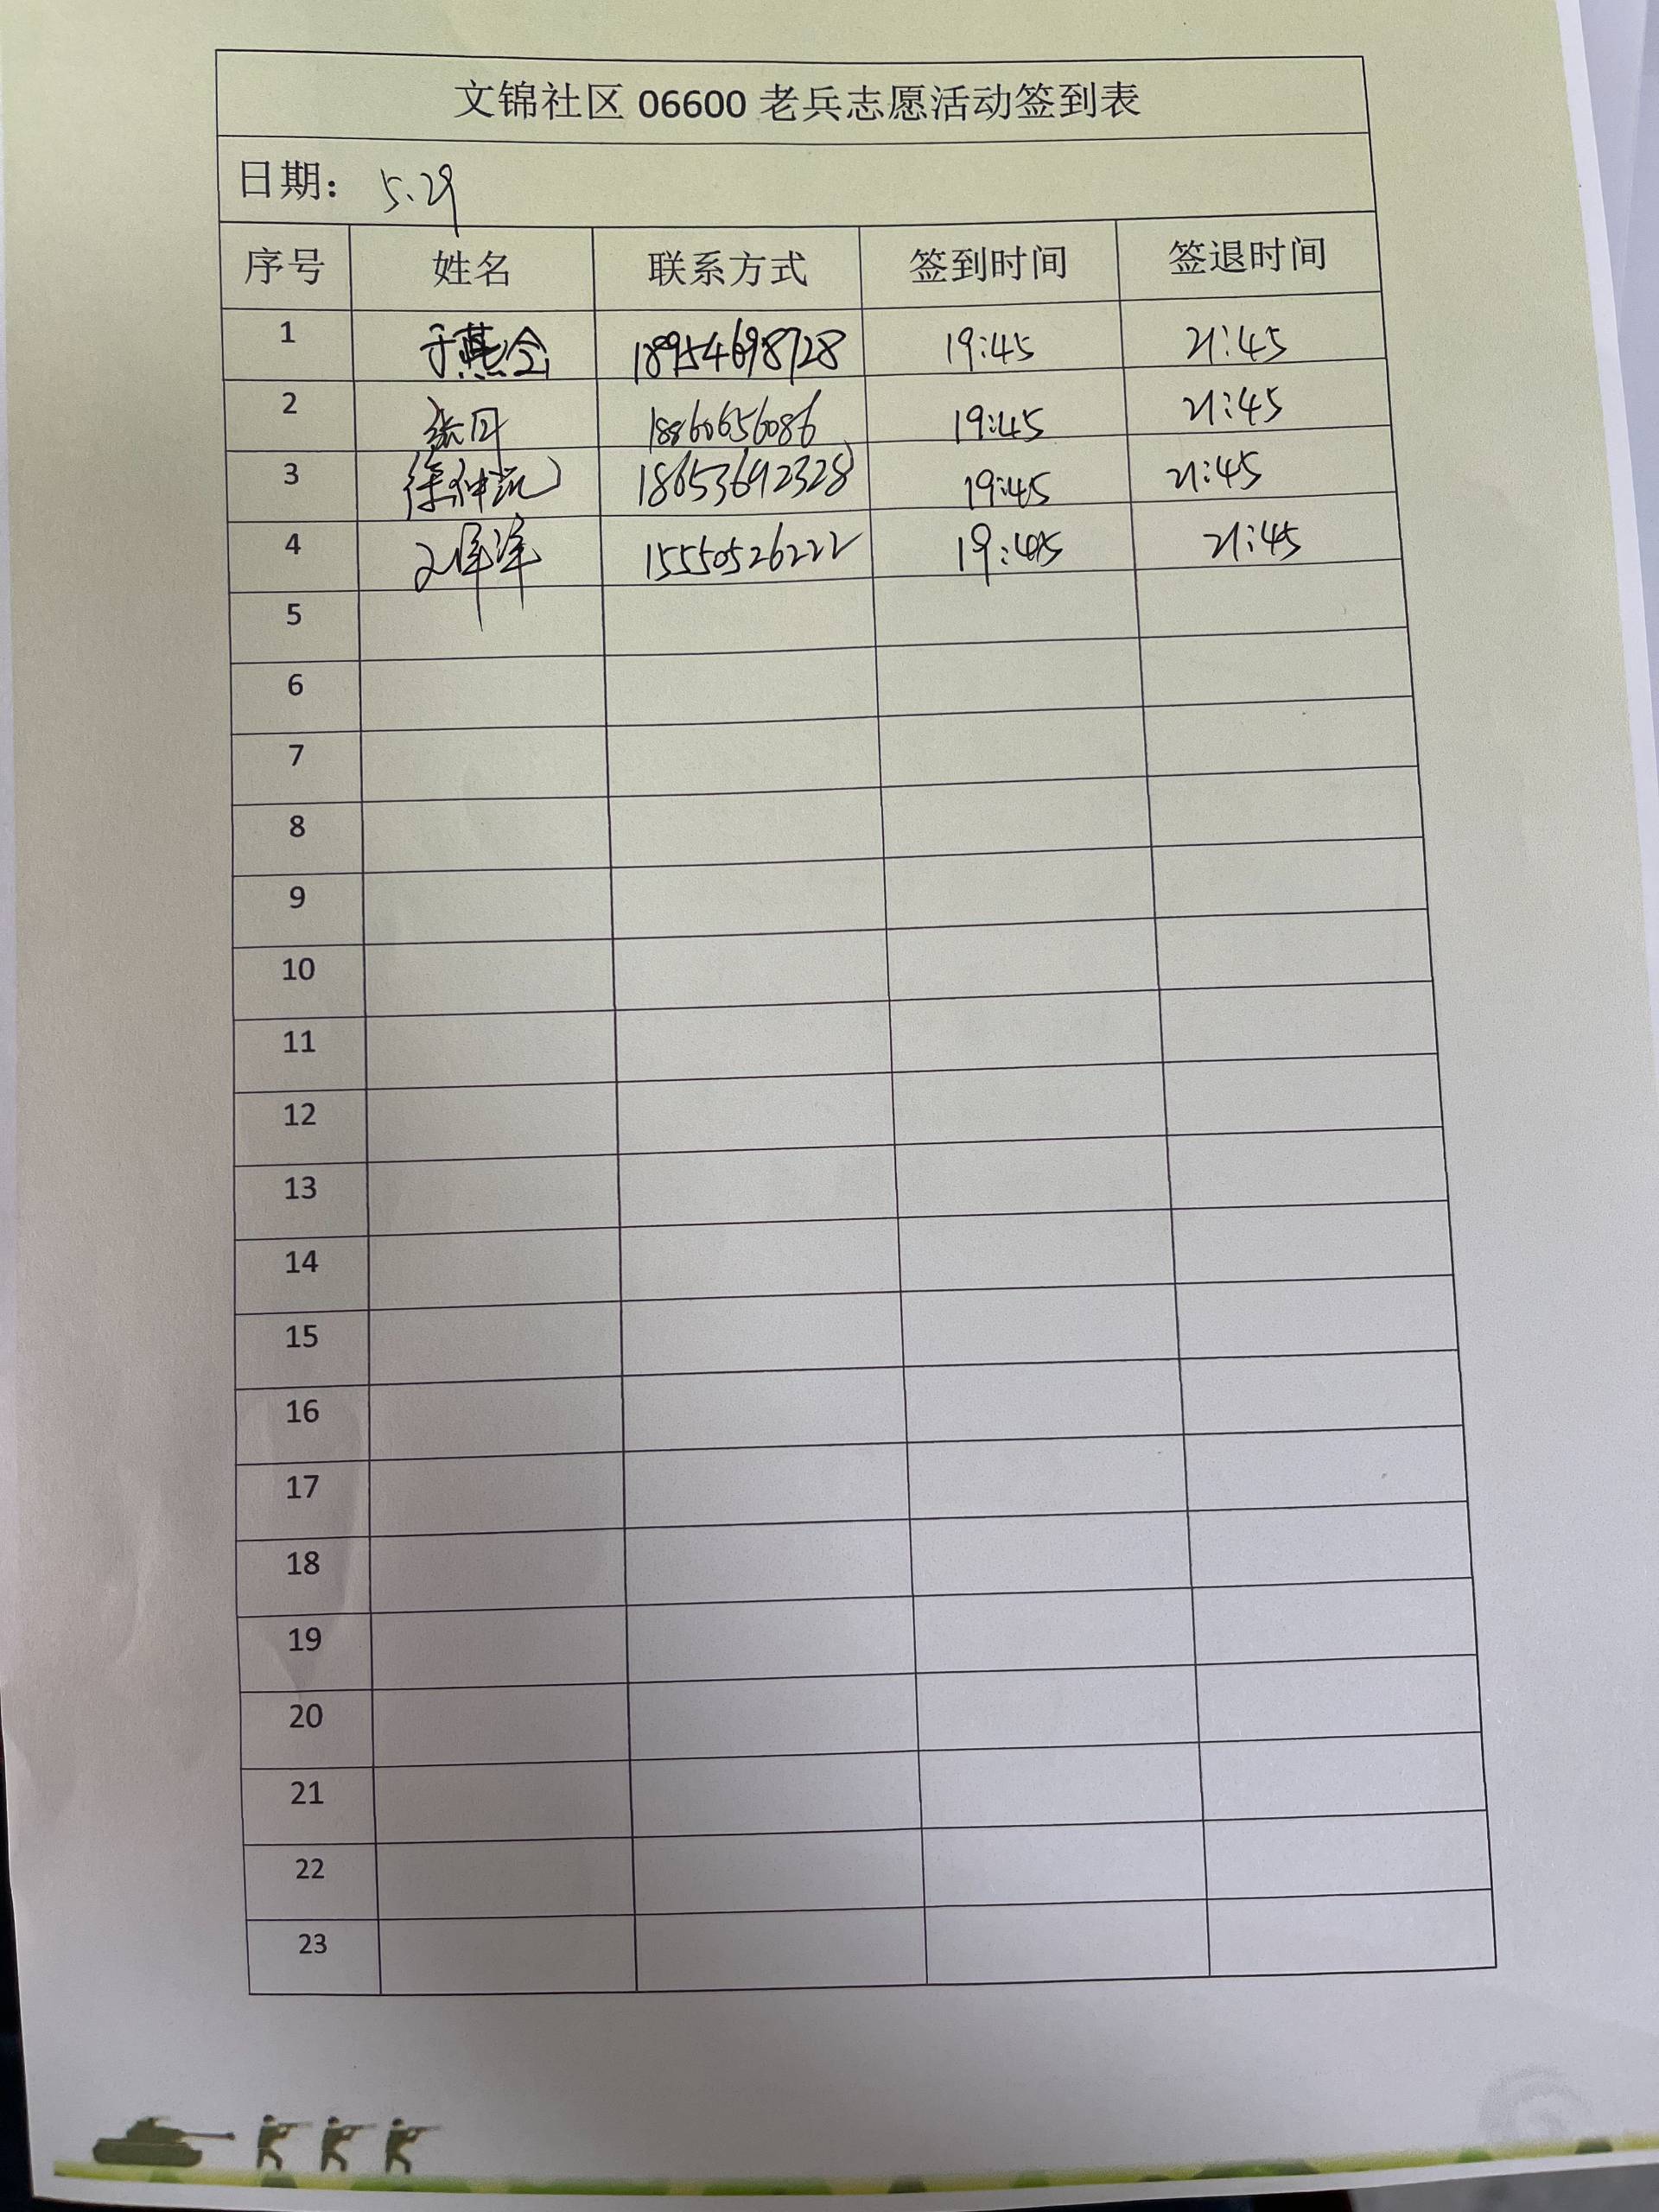 文锦社区 06600 老兵志愿活动签到表
日期： 5.29
序号 姓名 联系方式 签到时间 签退时间
1 于燕会 18954698728 19:45 21:45
2 张丹 18860656086 19:45 21:45
3 徐仲凯 18653692328 19:45 21:45
4 15550526222 19:45 21:45
5
6
7
8
9
10
11
12
13
14
15
16
17
18
19
20
21
22
23